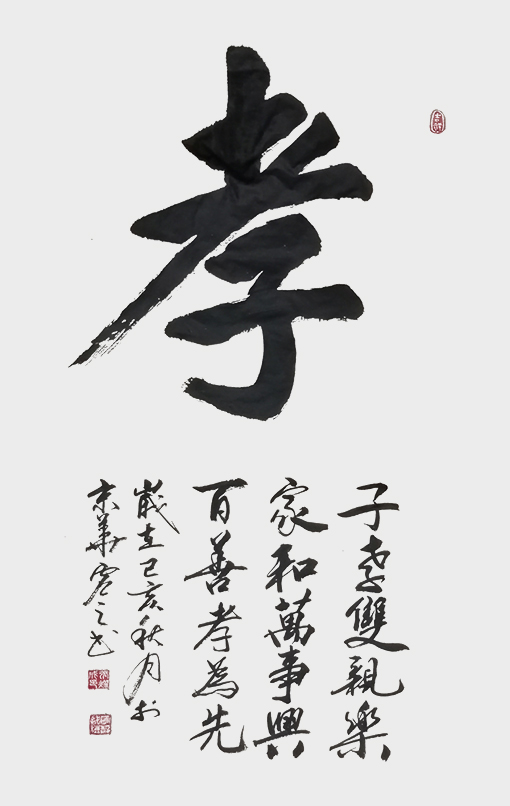 孝
子孝雙親樂
家和萬事興
百善孝為先
歲在己亥秋月於
京華宏之书